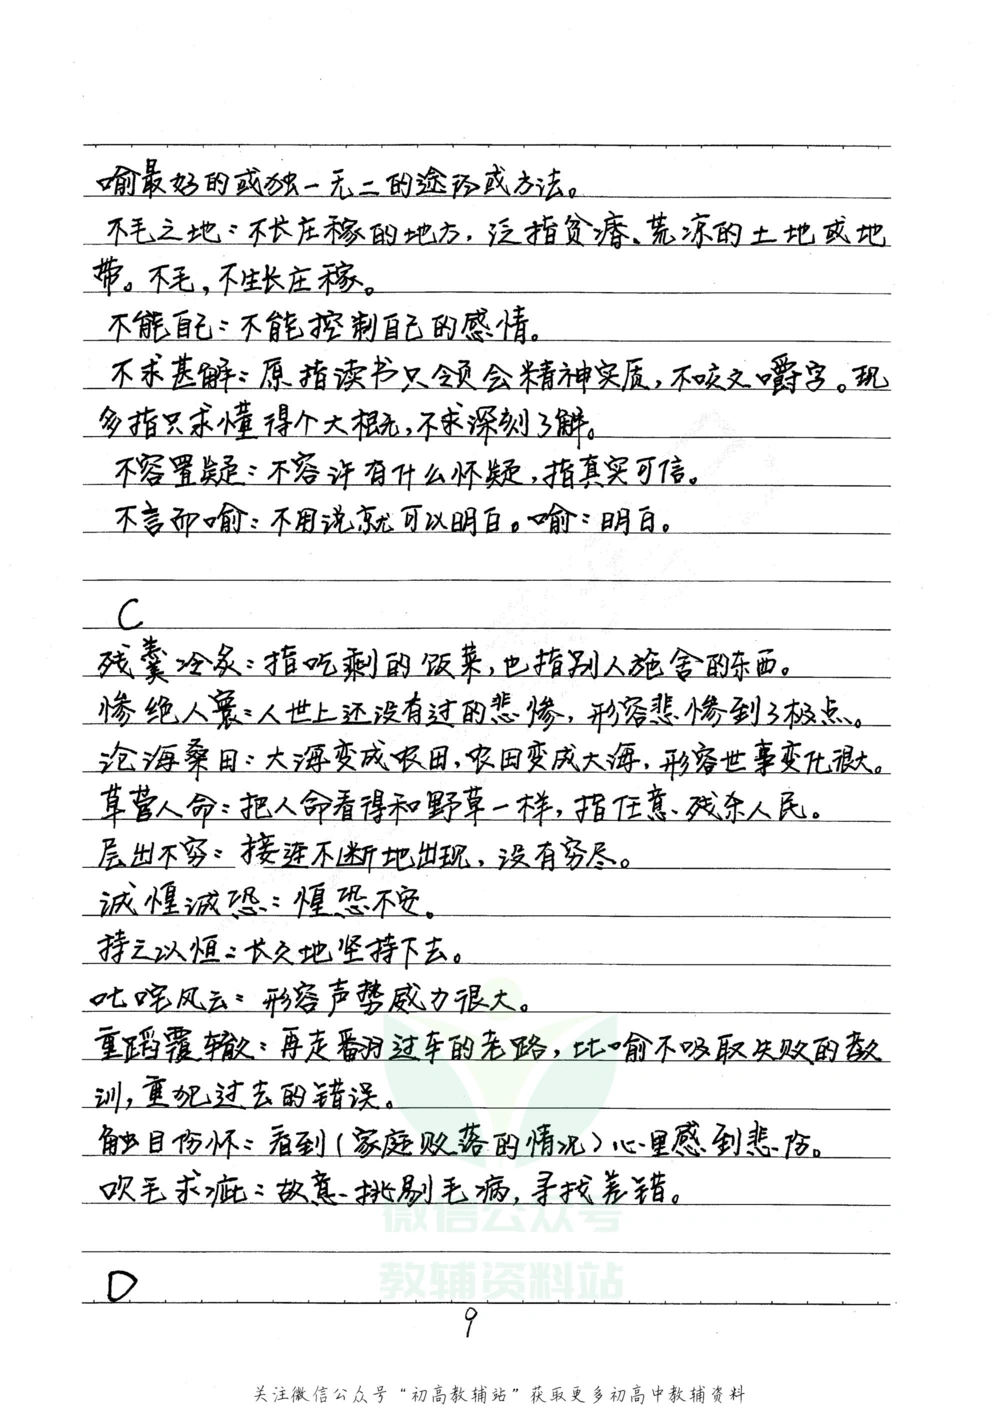 喻最好的或独一无二的途径或方法。
不毛之地：不长庄稼的地方，泛指贫瘠、荒凉的土地或地
带。不毛，不生长庄稼。
不能自已：不能控制自己的感情。
不求甚解：原指读书只领会精神实质，不咬文嚼字。现
多指只求懂得个大概，不求深刻了解。
不容置疑：不容许有什么怀疑，指真实可信。
不言而喻：不用说就可以明白。喻：明白。
C
残羹冷炙：指吃剩的饭菜，也指别人施舍的东西。
惨绝人寰：人世上还没有过的悲惨，形容悲惨到了极点。
沧海桑田：大海变成农田，农田变成大海，形容世事变化很大。
草菅人命：把人命看得和野草一样，指任意残杀人民。
层出不穷：接连不断地出现，没有穷尽。
诚惶诚恐：惶恐不安。
持之以恒：长久地坚持下去。
叱咤风云：形容声势威力很大。
重蹈覆辙：再走翻过车的老路，比喻不吸取失败的教
训，重犯过去的错误。
触目伤怀：看到（家庭败落的情况）心里感到悲伤。
吹毛求疵：故意挑剔毛病，寻找差错。
微信公众号
教辅资料站
D
9
关注微信公众号“初高教辅站”获取更多初高中教辅资料